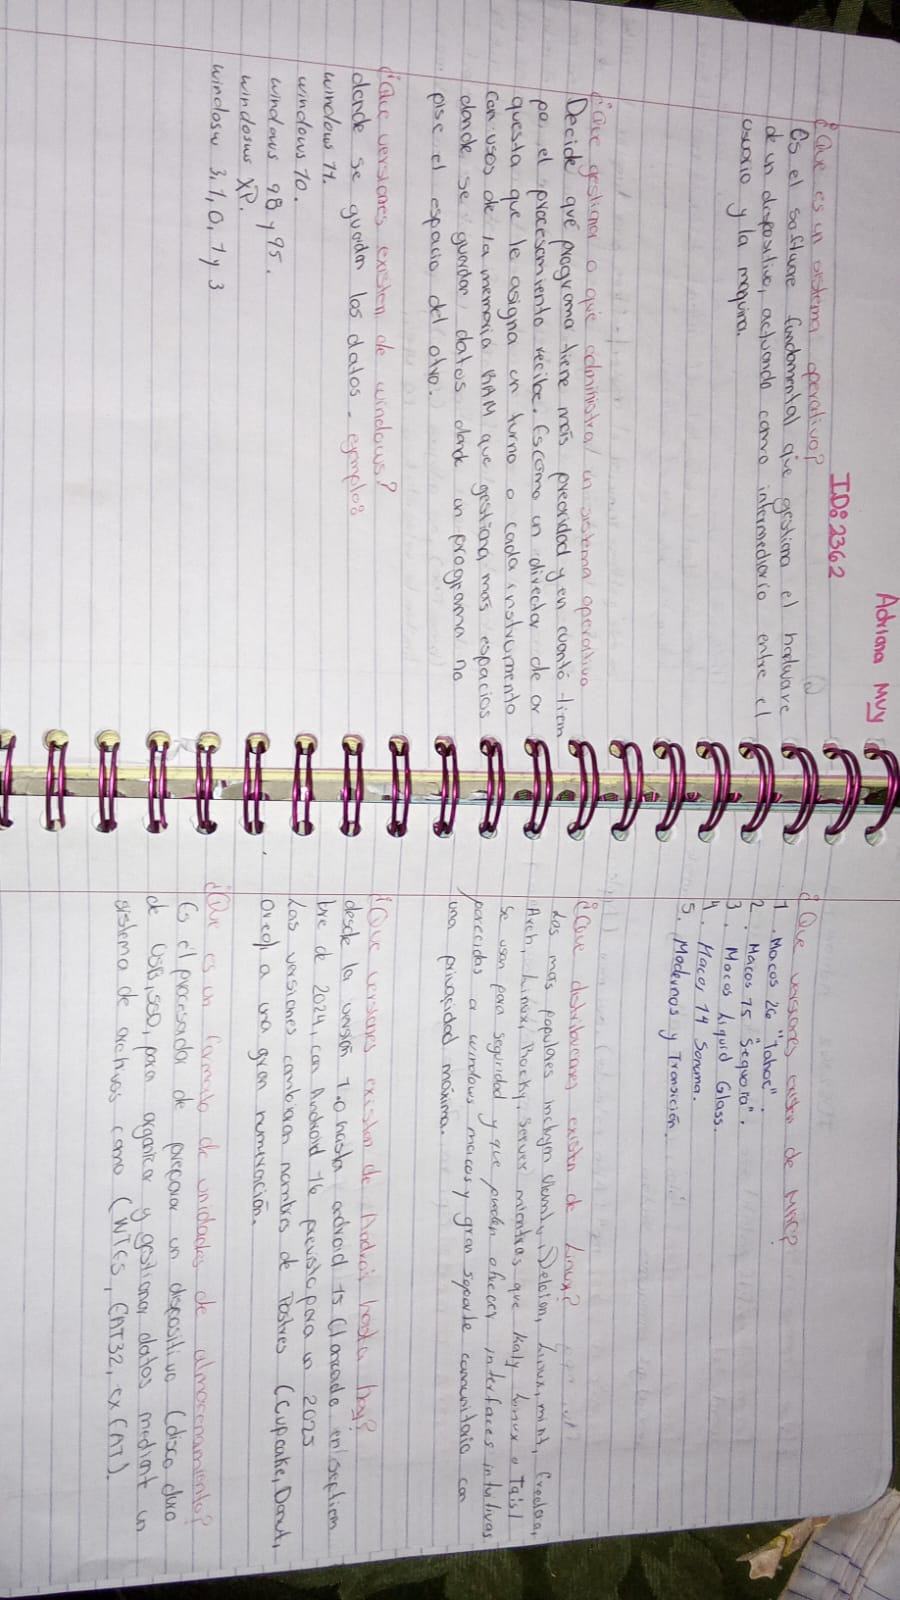 Adriana Muy
ID: 2362
¿Que es un sistema operativo?
Es el software fundamental que gestiona el hadware
de un dispositivo, actuando como intermediario entre el
usuario y la maquina.
¿Que gestiona o que administra un sistema operativo
Decide qué programa tiene más preoridad y en cuantó tiem
po el procesamiento recibe. Es como un director de or
questa que le asigna un turno a cada instrumento
con usos de la memoria RAM que gestiona mas espacios
donde se guardan datos donde un programa no
pise el espacio del otro.
¿Que versiones existen de windows?
donde se guardan los datos - ejemplo:
windows 11.
windows 10.
windows 98 y 95.
windosws XP.
windosw 3,1,0, 1 y 3
¿Que versiones existen de MAC?
1. Macos 26 "Tahoe".
2. Macos 15 "Sequoia".
3. Macos Liquid Glass.
4. Macos 14 Sonoma.
5. Modernos y Transición.
¿Que distribuciones existen de Linux?
Las mas populares incluyen Ubuntu, Debian, Linux, mint, Fredora,
Arch, Linux, Rocky, server mientras que Kaly, Linux o Tails
se usan para seguridad y que pueden ofrecer interfaces intuitivas
parecidas a windows macos y gran soporte comunitario con
una privacidad maxima.
¿Que versiones existen de Androi hasta hoy?
desde la versión 1.0 hasta android 15 (lanzada en septiem
bre de 2024, con Android 16 prevista para un 2025
Las versiones cambian nombres de Postres (Cupcake, Donut,
Oreo) a una gran numeración.
¿Que es un formato de unidades de almacenamiento?
Es el procesador de preparar un dispositivo (disco duro
de USB, SSD, para organizar y gestionar datos mediant un
sistema de archivos como (NTFS, FAT32, exFAT).